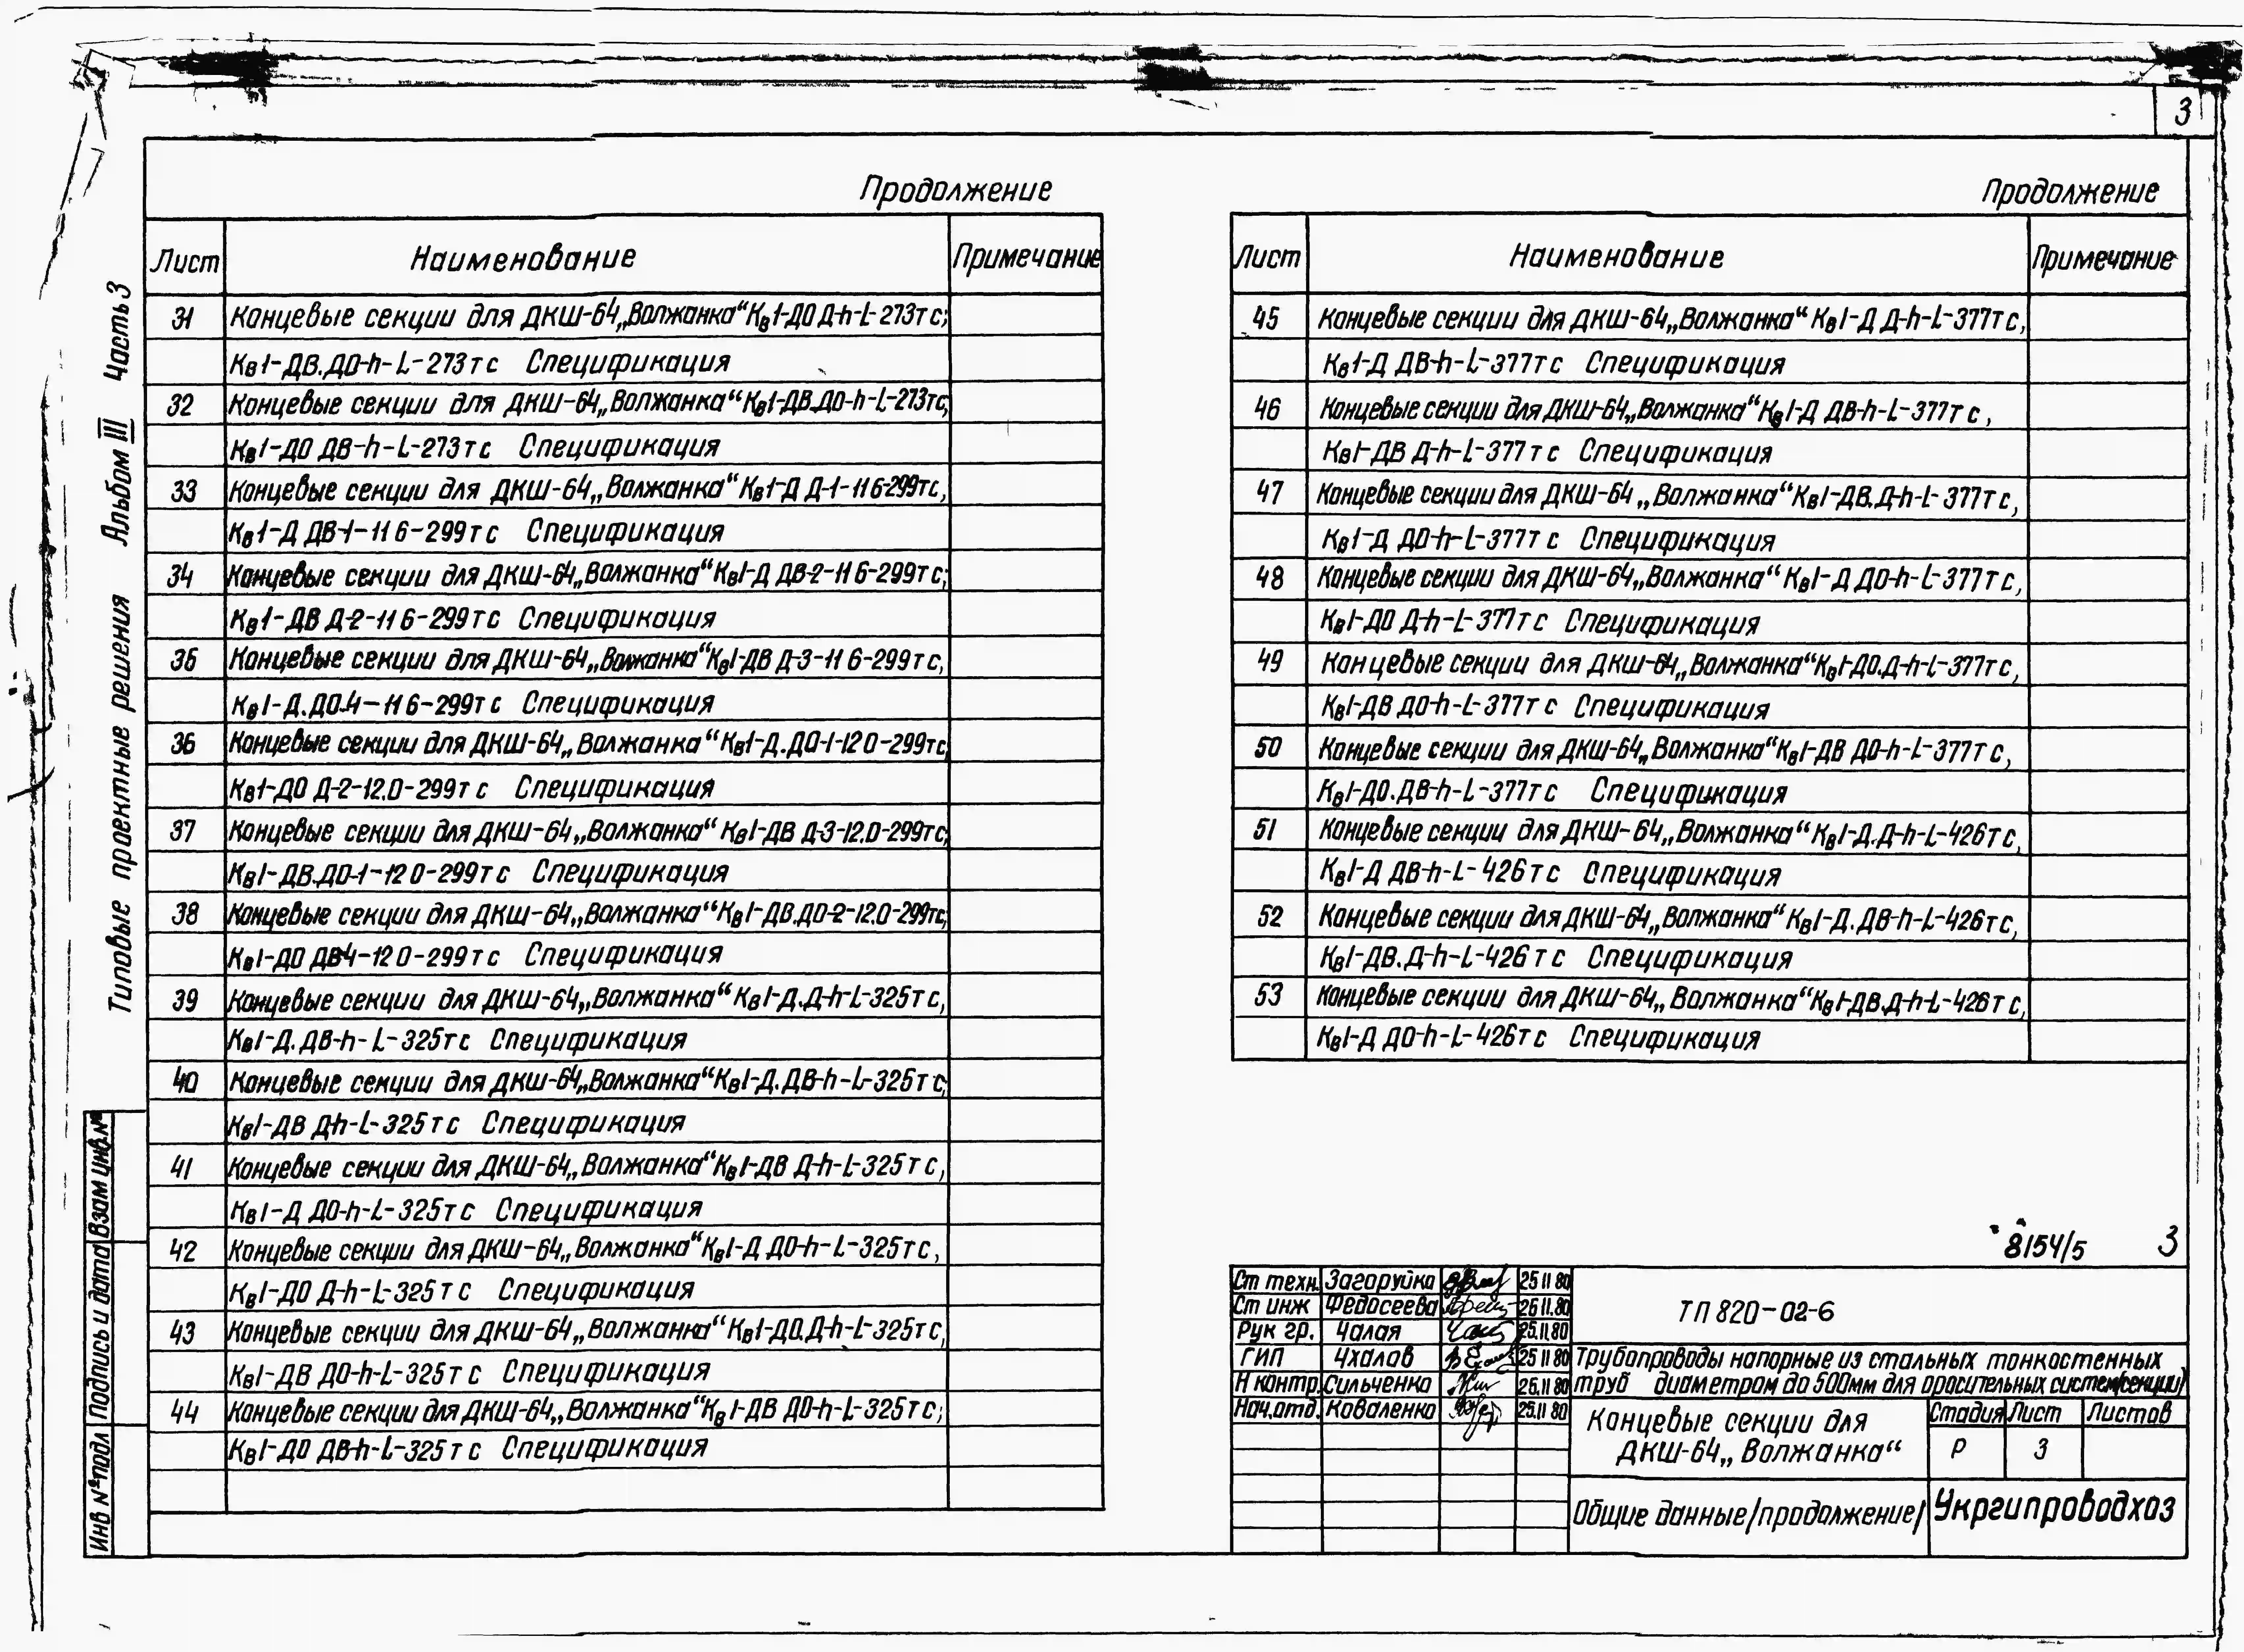 3
Типовые проектные решения Альбом III Часть 3
Продолжение
Лист Наименование Примечание
31 Концевые секции для ДКШ-64 „Волжанка“ Кв1-ДО Д-h-L-273тс;
Кв1-ДВ.ДО-h-L-273тс Спецификация
32 Концевые секции для ДКШ-64 „Волжанка“ Кв1-ДВ.ДО-h-L-273тс,
Кв1-ДО ДВ-h-L-273тс Спецификация
33 Концевые секции для ДКШ-64 „Волжанка“ Кв1-Д Д-1-11 6-299тс,
Кв1-Д ДВ-1-11 6-299тс Спецификация
34 Концевые секции для ДКШ-64 „Волжанка“ Кв1-Д ДВ-2-11 6-299тс;
Кв1-ДВ Д-2-11 6-299тс Спецификация
35 Концевые секции для ДКШ-64 „Волжанка“ Кв1-ДВ Д-3-11 6-299тс,
Кв1-Д.ДО-4-11 6-299тс Спецификация
36 Концевые секции для ДКШ-64 „Волжанка“ Кв1-Д.ДО-1-12 0-299тс,
Кв1-ДО Д-2-12.0-299тс Спецификация
37 Концевые секции для ДКШ-64 „Волжанка“ Кв1-ДВ Д-3-12.0-299тс,
Кв1-ДВ.ДО-1-12 0-299тс Спецификация
38 Концевые секции для ДКШ-64 „Волжанка“ Кв1-ДВ.ДО-2-12.0-299тс,
Кв1-ДО ДВ-4-12 0-299тс Спецификация
39 Концевые секции для ДКШ-64 „Волжанка“ Кв1-Д.Д-h-L-325тс,
Кв1-Д.ДВ-h-L-325тс Спецификация
40 Концевые секции для ДКШ-64 „Волжанка“ Кв1-Д.ДВ-h-L-325тс,
Кв1-ДВ Д-h-L-325тс Спецификация
41 Концевые секции для ДКШ-64 „Волжанка“ Кв1-ДВ Д-h-L-325тс,
Кв1-Д ДО-h-L-325тс Спецификация
42 Концевые секции для ДКШ-64 „Волжанка“ Кв1-Д ДО-h-L-325тс,
Кв1-ДО Д-h-L-325тс Спецификация
43 Концевые секции для ДКШ-64 „Волжанка“ Кв1-ДО.Д-h-L-325тс,
Кв1-ДВ ДО-h-L-325тс Спецификация
44 Концевые секции для ДКШ-64 „Волжанка“ Кв1-ДВ ДО-h-L-325тс;
Кв1-ДО ДВ-h-L-325тс Спецификация
Продолжение
Лист Наименование Примечание
45 Концевые секции для ДКШ-64 „Волжанка“ Кв1-Д Д-h-L-377тс,
Кв1-Д ДВ-h-L-377тс Спецификация
46 Концевые секции для ДКШ-64 „Волжанка“ Кв1-Д ДВ-h-L-377тс,
Кв1-ДВ Д-h-L-377тс Спецификация
47 Концевые секции для ДКШ-64 „Волжанка“ Кв1-ДВ.Д-h-L-377тс,
Кв1-Д ДО-h-L-377тс Спецификация
48 Концевые секции для ДКШ-64 „Волжанка“ Кв1-Д ДО-h-L-377тс,
Кв1-ДО Д-h-L-377тс Спецификация
49 Концевые секции для ДКШ-64 „Волжанка“ Кв1-ДО.Д-h-L-377тс,
Кв1-ДВ ДО-h-L-377тс Спецификация
50 Концевые секции для ДКШ-64 „Волжанка“ Кв1-ДВ ДО-h-L-377тс,
Кв1-ДО.ДВ-h-L-377тс Спецификация
51 Концевые секции для ДКШ-64 „Волжанка“ Кв1-Д.Д-h-L-426тс,
Кв1-Д ДВ-h-L-426тс Спецификация
52 Концевые секции для ДКШ-64 „Волжанка“ Кв1-Д.ДВ-h-L-426тс,
Кв1-ДВ.Д-h-L-426тс Спецификация
53 Концевые секции для ДКШ-64 „Волжанка“ Кв1-ДВ.Д-h-L-426тс,
Кв1-Д ДО-h-L-426тс Спецификация
8154/5 3
Ст техн. Загоруйко 25 11 80
Ст инж Федосеева 26 11.80
Рук гр. Чалая 25.11.80
ГИП Чхалов 25 11 80
Н контр. Сильченко 26.11 80
Нач.отд. Коваленко 25.11 80
ТП 820-02-6
Трубопроводы напорные из стальных тонкостенных
труб диаметром до 500мм для оросительных систем(секции)
Концевые секции для
ДКШ-64 „Волжанка“
Стадия Лист Листов
Р 3
Общие данные /продолжение/
Укргипроводхоз
Взам инв.№
Подпись и дата
Инв № подл